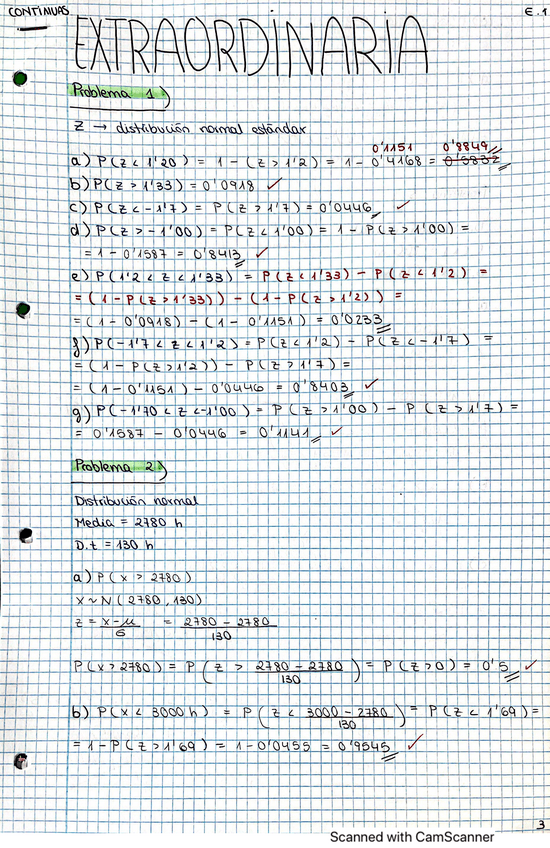 CONTINUAS
E.1
EXTRAORDINARIA
Problema 1
Z → distribución normal estándar
0'1151 0'8849
a) P(z < 1'20) = 1 - (z > 1'2) = 1 - 0'4168 = 0'5832
b) P(z > 1'33) = 0'0918 ✓
c) P(z < -1'7) = P(z > 1'7) = 0'0446 ✓
d) P(z > -1'00) = P(z < 1'00) = 1 - P(z > 1'00) =
= 1 - 0'1587 = 0'8413 ✓
e) P(1'2 < z < 1'33) = P(z < 1'33) - P(z < 1'2) =
= (1 - P(z > 1'33)) - (1 - P(z > 1'2)) =
= (1 - 0'0918) - (1 - 0'1151) = 0'0233
f) P(-1'7 < z < 1'2) = P(z < 1'2) - P(z < -1'7) =
= (1 - P(z > 1'2)) - P(z > 1'7) =
= (1 - 0'1151) - 0'0446 = 0'8403 ✓
g) P(-1'70 < z < -1'00) = P(z > 1'00) - P(z > 1'7) =
= 0'1587 - 0'0446 = 0'1141 ✓
Problema 2
Distribución normal
Media = 2780 h
D.t = 130 h
a) P(x > 2780)
x ~ N(2780, 130)
z = x-μ/σ = 2780 - 2780/130
P(x > 2780) = P(z > 2780 - 2780/130) = P(z > 0) = 0'5 ✓
b) P(x < 3000 h) = P(z < 3000 - 2780/130) = P(z < 1'69) =
= 1 - P(z > 1'69) = 1 - 0'0455 = 0'9545 ✓
3
Scanned with CamScanner